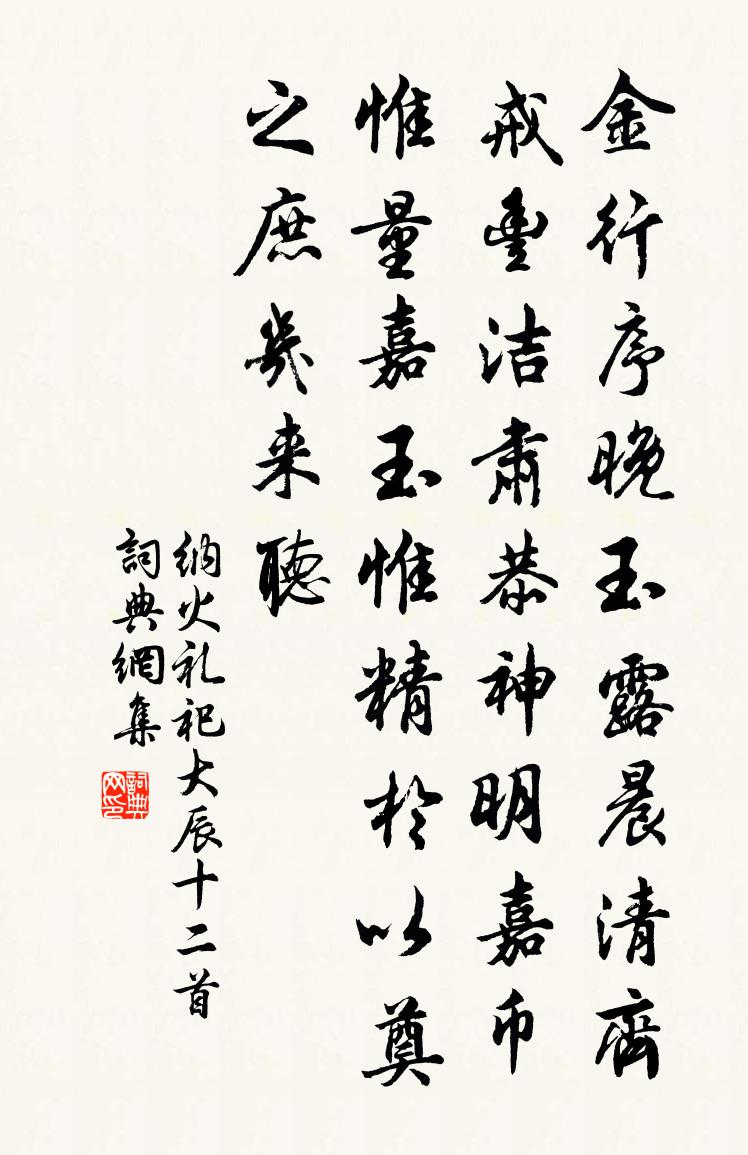 金行序晚玉露晨清齊
戒豐洁肅恭神明嘉币
惟量嘉玉惟精於以奠
之庶幾来聽
納火礼祀大辰十二首
詞典網集
詞典网印